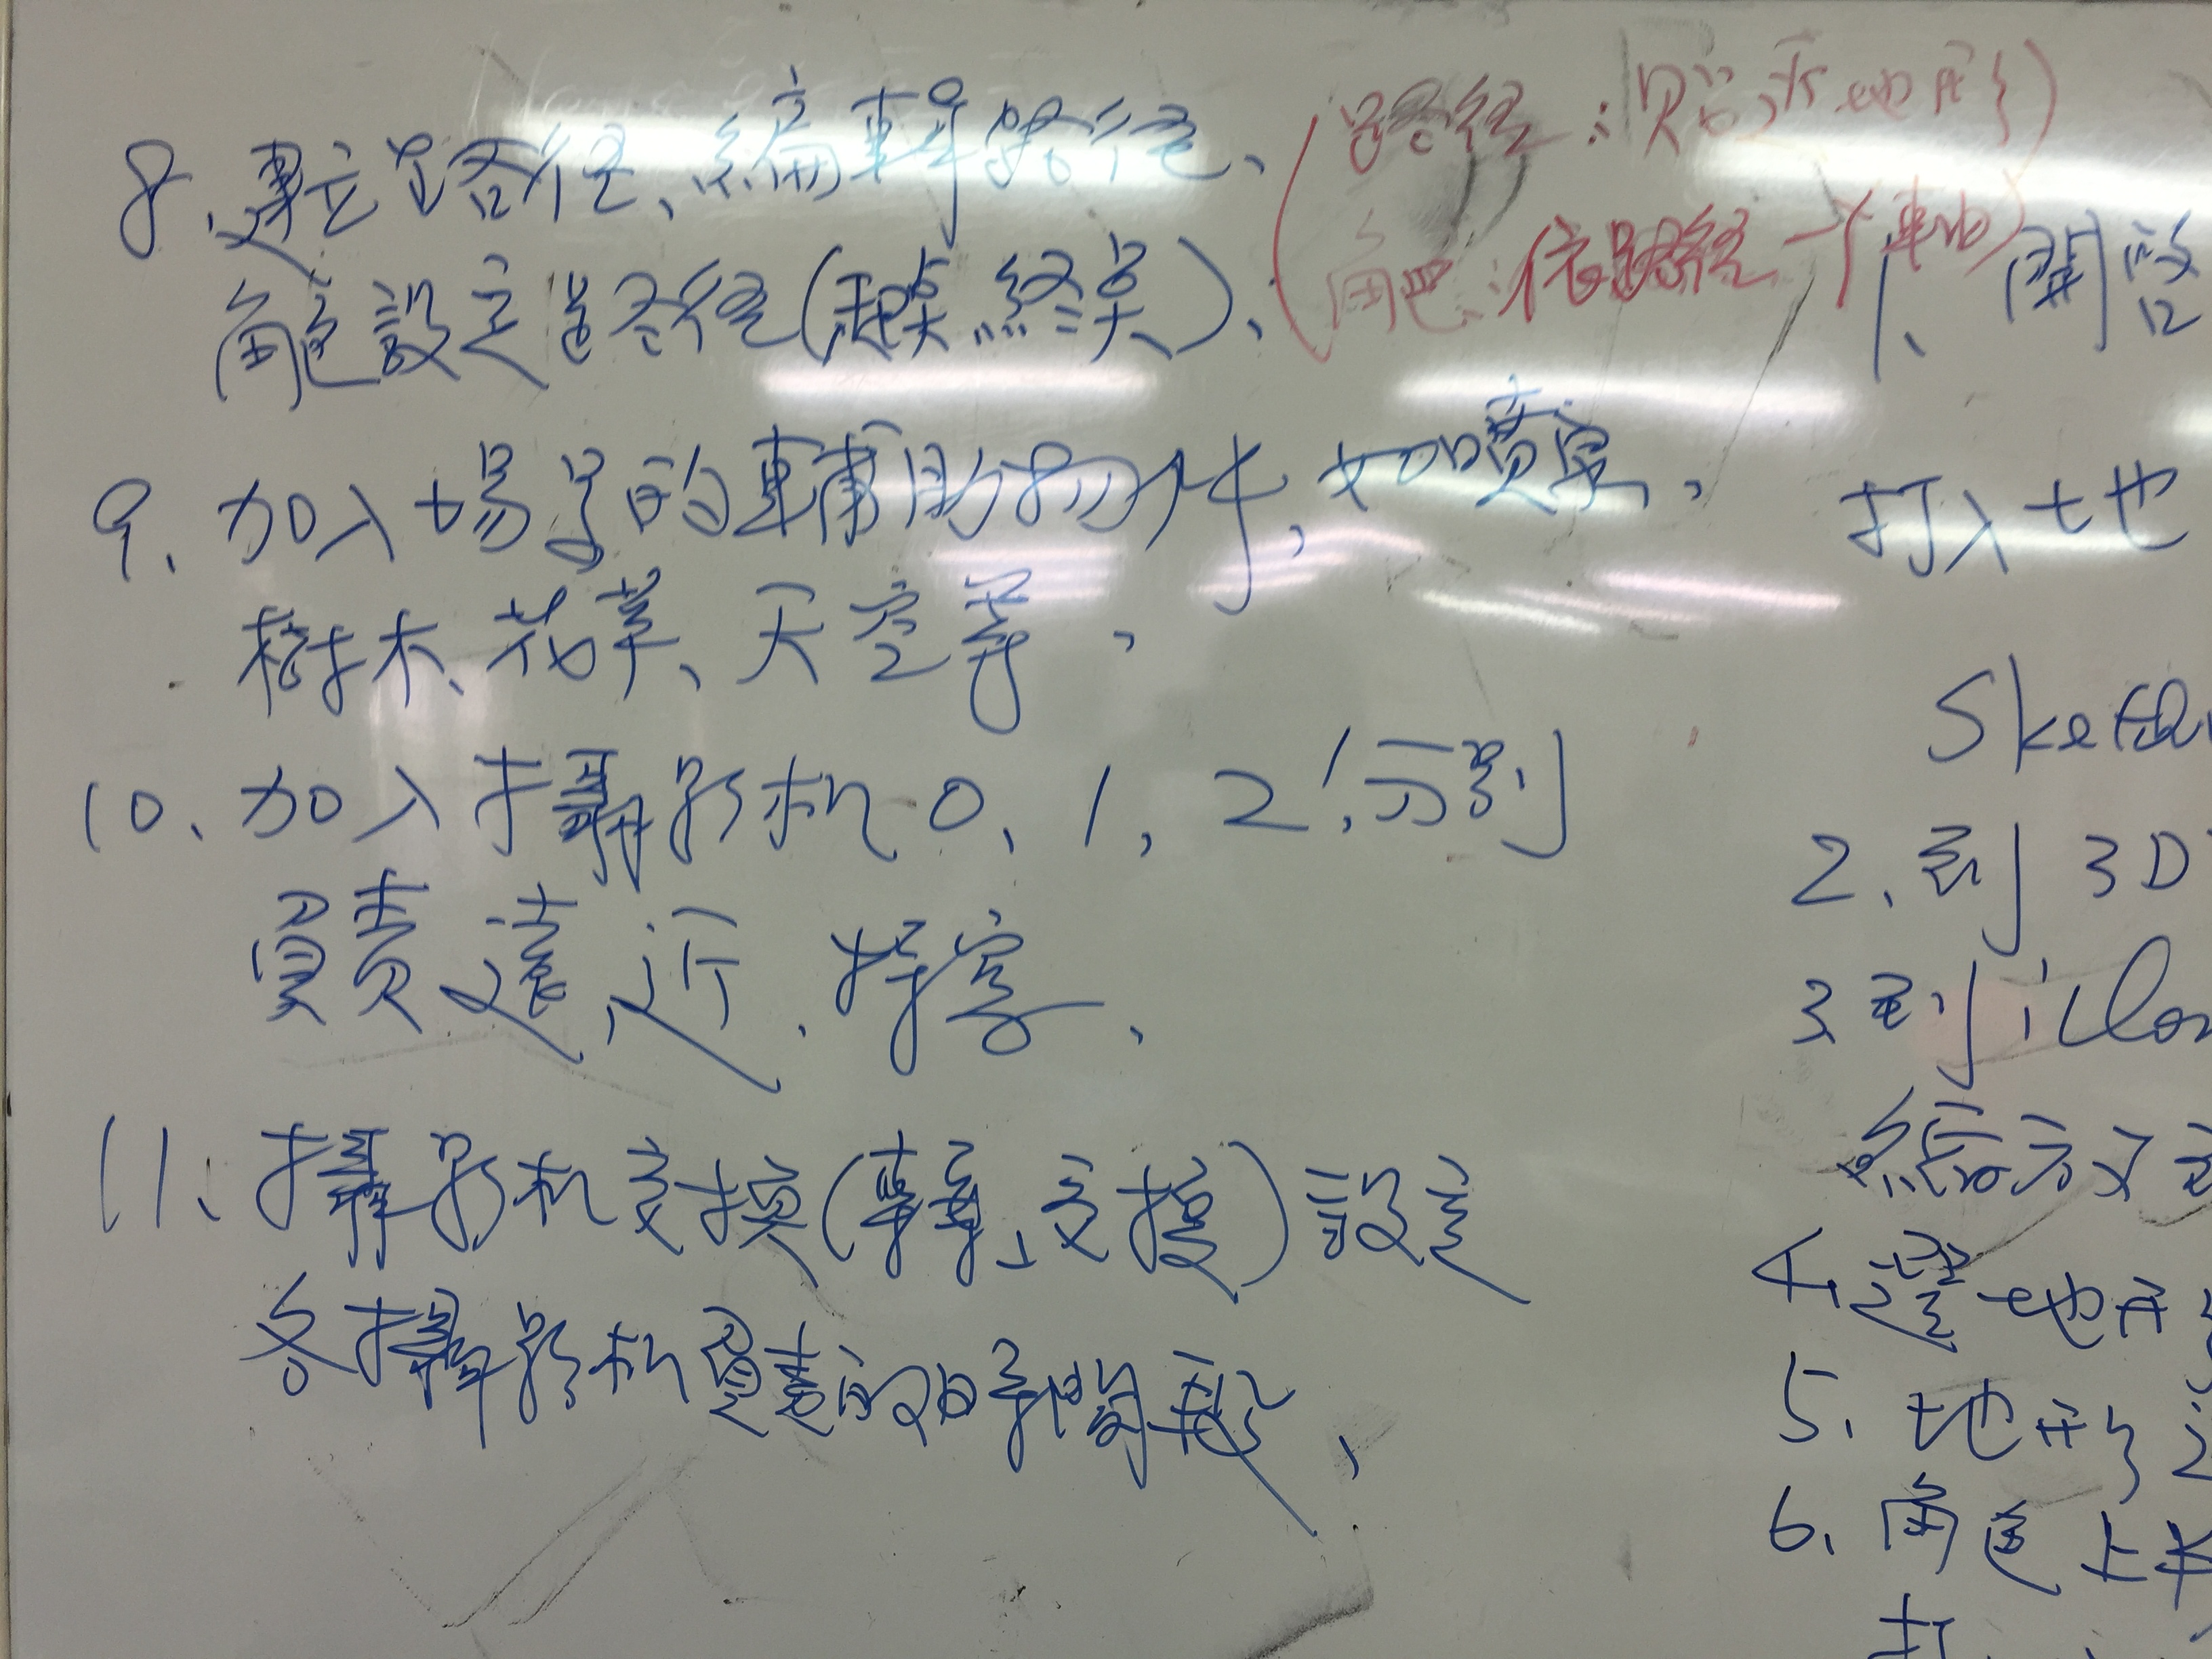 8、建立路徑、編輯路徑、
(路徑:貼承地形)
角色設定路徑(起点、終点)、
(角色:依路徑一y軸)
9、加入場景的輔助物件,如噴泉,
樹木、花草、天空等、
10、加入攝影机0、1、2,分別
負責遠、近、特寫、
11、攝影机交換(事件、支援)設定
各攝影机負責的時間段、
1、開啟
打入土地
2、到3D
3、到iClon
4、選地形
5、地形
6、角色上半
打